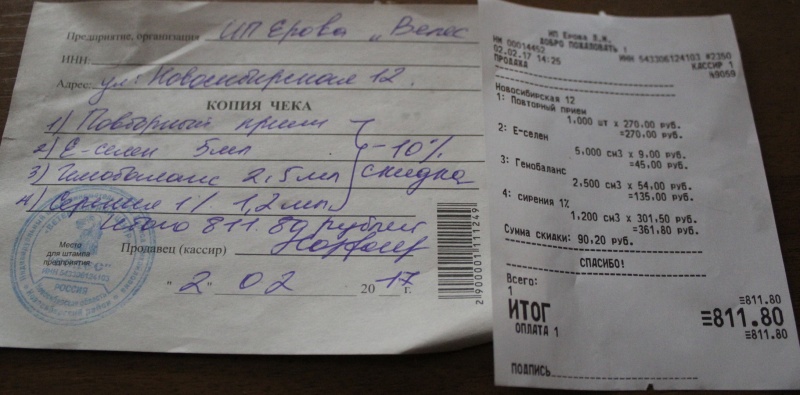 Предприятие, организация ИП Ерова „Велес
ИНН:
Адрес: ул: Новосибирская 12.
КОПИЯ ЧЕКА
1) Повторный прием
2) Е-селен 5мл
3) Гемобаланс 2,5мл
4) Серения 1% 1,2мл
-10% скидка
Итого 811.80 рублей
Место
для штампа
предприятия
Продавец (кассир)
"2" 02 2017 г.
РОССИЯ
2900001111249
ИП Ерова Е.Ж.
ДОБРО ПОЖАЛОВАТЬ !
НМ 00014452 ИНН 543306124103 #2350
02.02.17 14:25 КАССИР 1
ПРОДАЖА №9059
Новосибирская 12
1: Повторный прием
1,000 шт x 270.00 руб.
=270.00 руб.
2: Е-селен
5,000 см3 x 9.00 руб.
=45.00 руб.
3: Гемобаланс
2,500 см3 x 54.00 руб.
=135.00 руб.
4: сирения 1%
1,200 см3 x 301.50 руб.
=361.80 руб.
Сумма скидки: 90,20 руб.
СПАСИБО!
Всего: ≡811.80
1
ИТОГ ≡811.80
ОПЛАТА 1 ≡811.80
ПОДПИСЬ